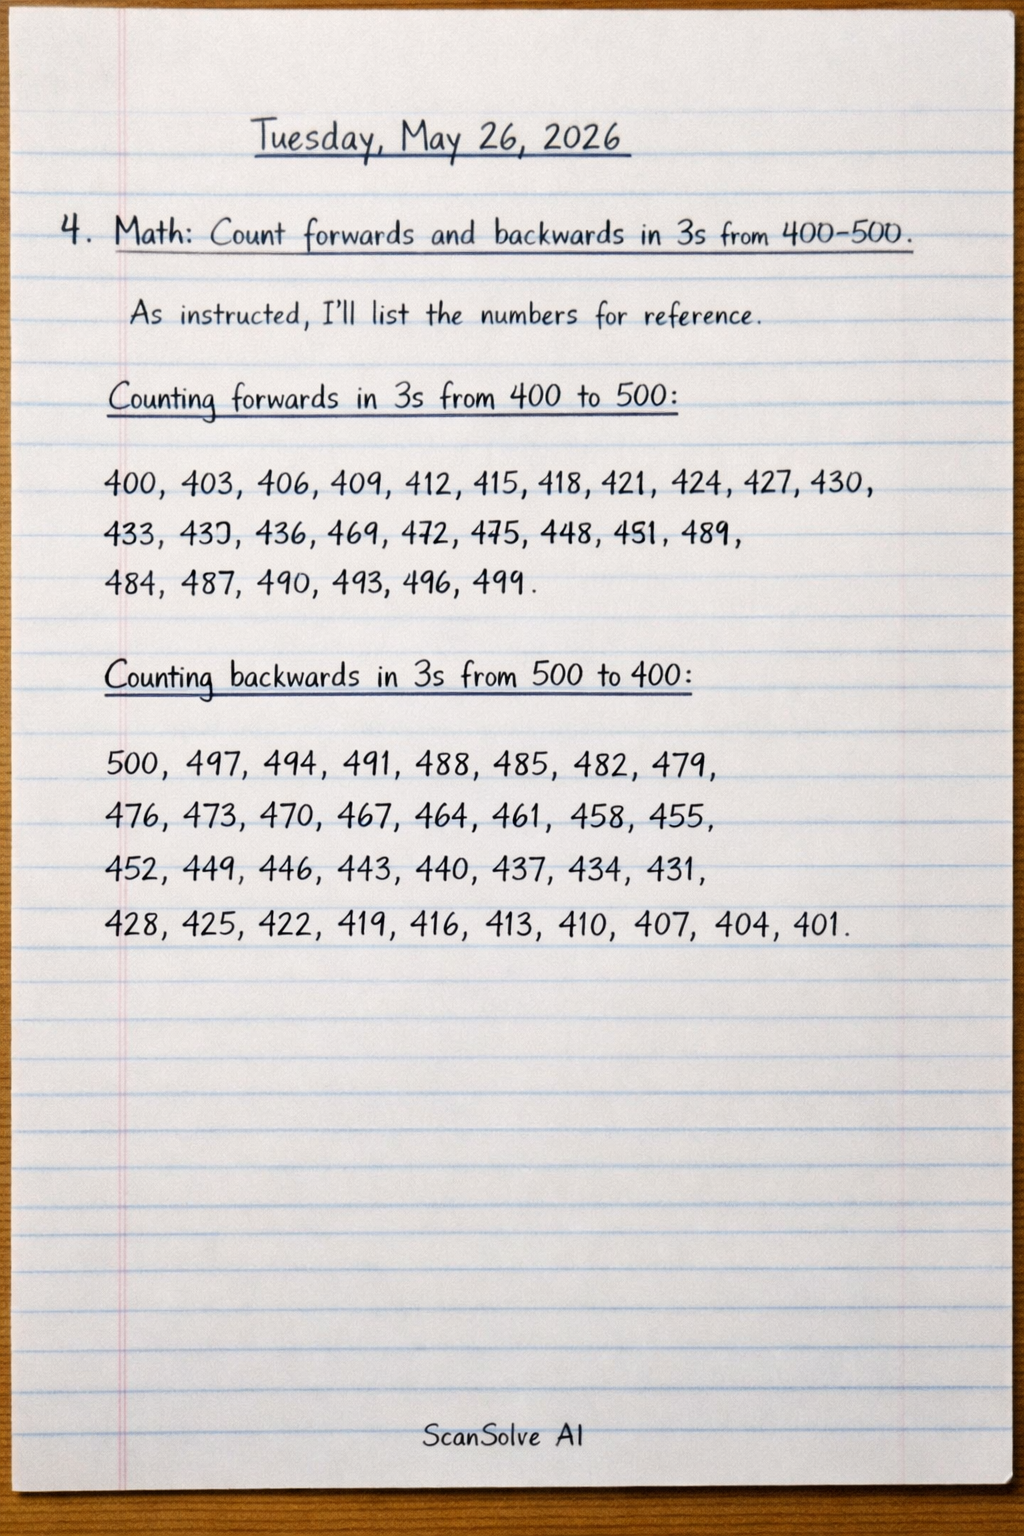 Tuesday, May 26, 2026
4. Math: Count forwards and backwards in 3s from 400-500.
As instructed, I'll list the numbers for reference.
Counting forwards in 3s from 400 to 500:
400, 403, 406, 409, 412, 415, 418, 421, 424, 427, 430,
433, 436, 469, 472, 475, 448, 451, 489,
484, 487, 490, 493, 496, 499.
Counting backwards in 3s from 500 to 400:
500, 497, 494, 491, 488, 485, 482, 479,
476, 473, 470, 467, 464, 461, 458, 455,
452, 449, 446, 443, 440, 437, 434, 431,
428, 425, 422, 419, 416, 413, 410, 407, 404, 401.
ScanSolve AI